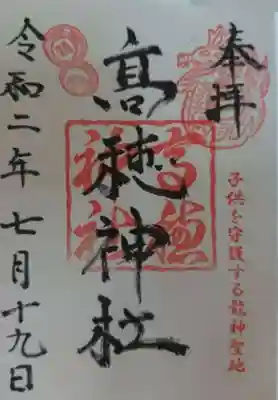 奉拝
子供を守護する龍神聖地
髙穂神社
高穂
神社
令和二年七月十九日